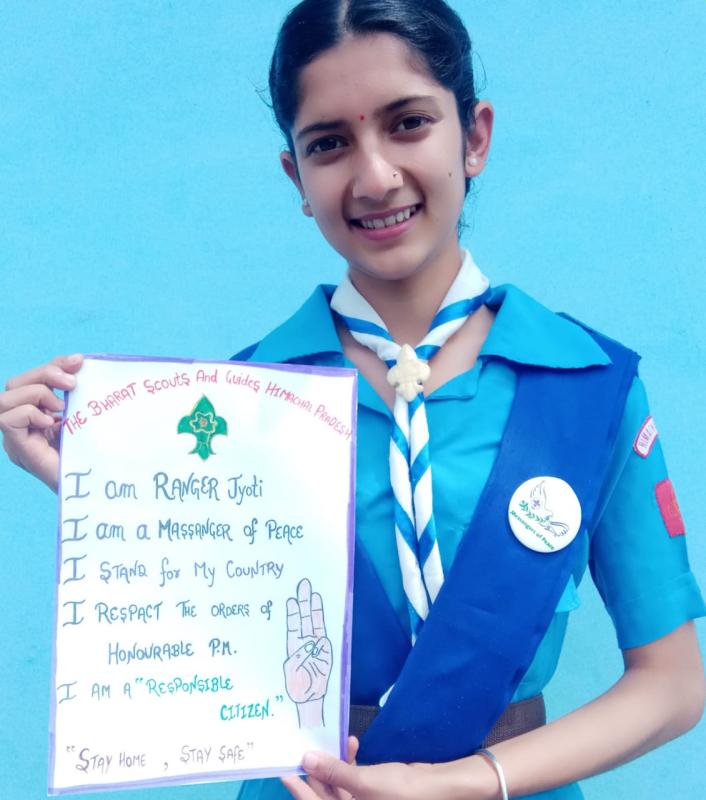 THE BHARAT SCOUTS AND GUIDES HIMACHAL PRADESH
I am RANGER Jyoti
I am a MASSANGER of PEACE
I STAND for My COUNTRY
I RESPACT THE ORDERS of
HONOURABLE P.M.
I AM A "RESPONSIBLE
CITIZEN."
"STAY HOME , STAY SAFE"
Messengers of Peace